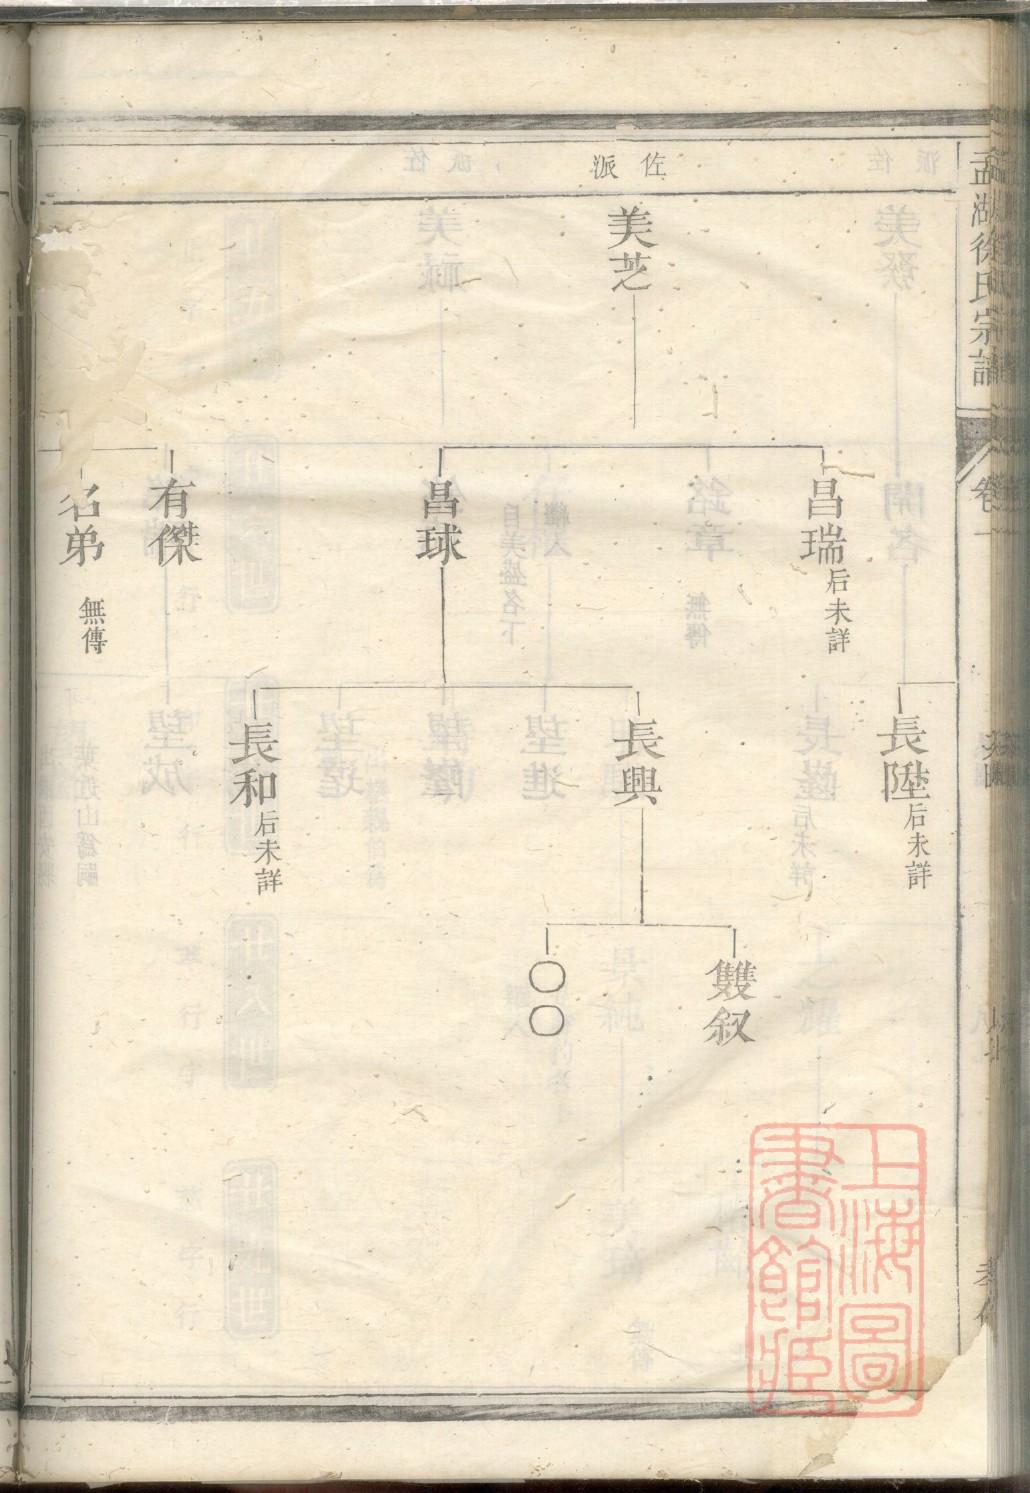 孟湖徐氏宗譜
卷一
佐派
美芝
昌瑞
后未詳
昌球
有傑
名弟
無傳
長陞
后未詳
長興
長和
后未詳
雙叙
〇〇
上海圖
書館藏